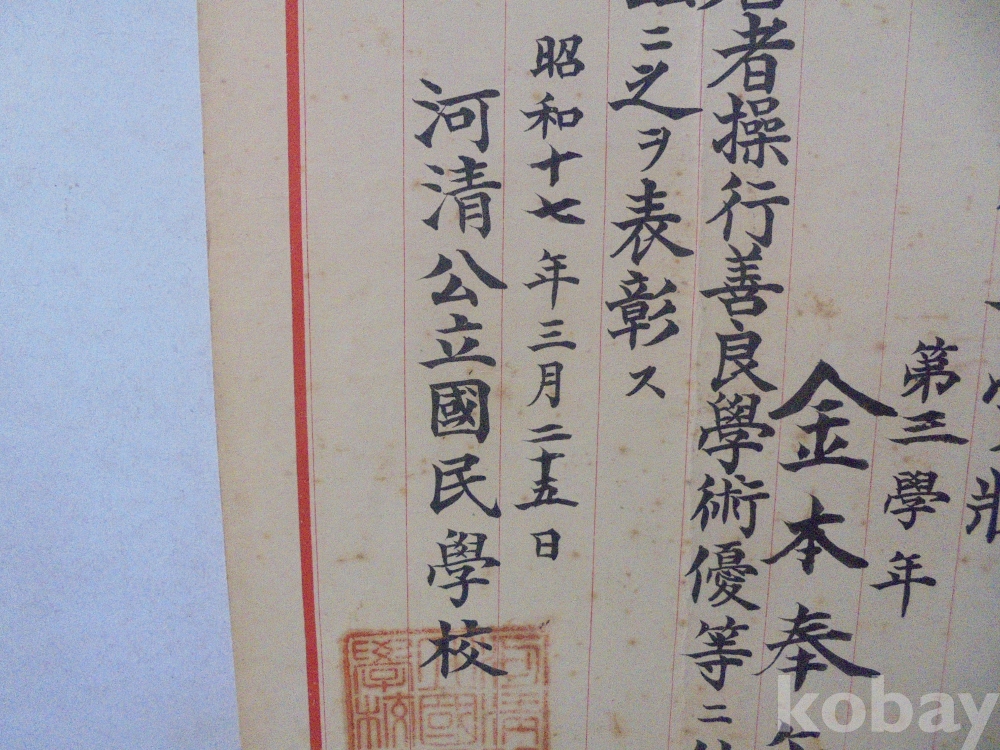 狀
第三學年
金本奉
者操行善良學術優等ニ
ニ之ヲ表彰ス
昭和十七年三月二十五日
河清公立國民學校
kobay